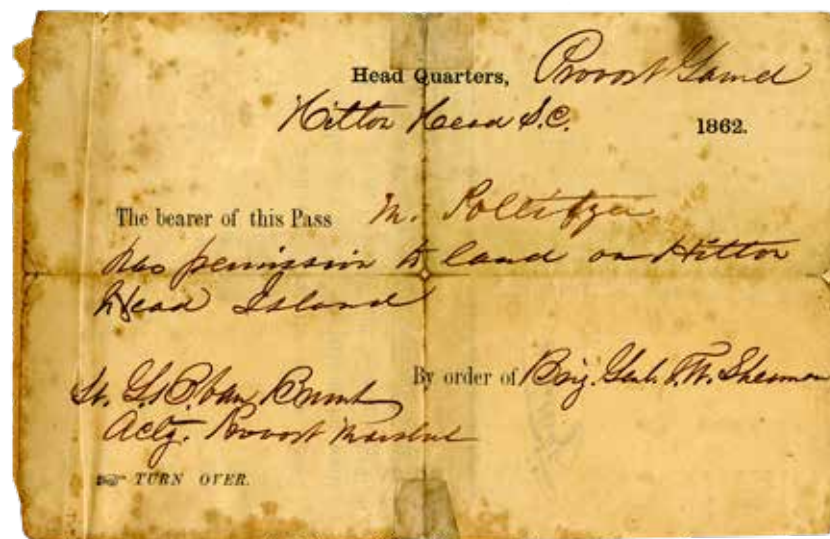 Head Quarters, Provost Guard
Hilton Head S.C. 1862.
The bearer of this Pass M. Pollitzer
has permission to land on Hilton
Head Island
By order of Brig. Genl. T. W. Sherman
Lt. G. S. Van Brunt
Actg. Provost Marshal
TURN OVER.